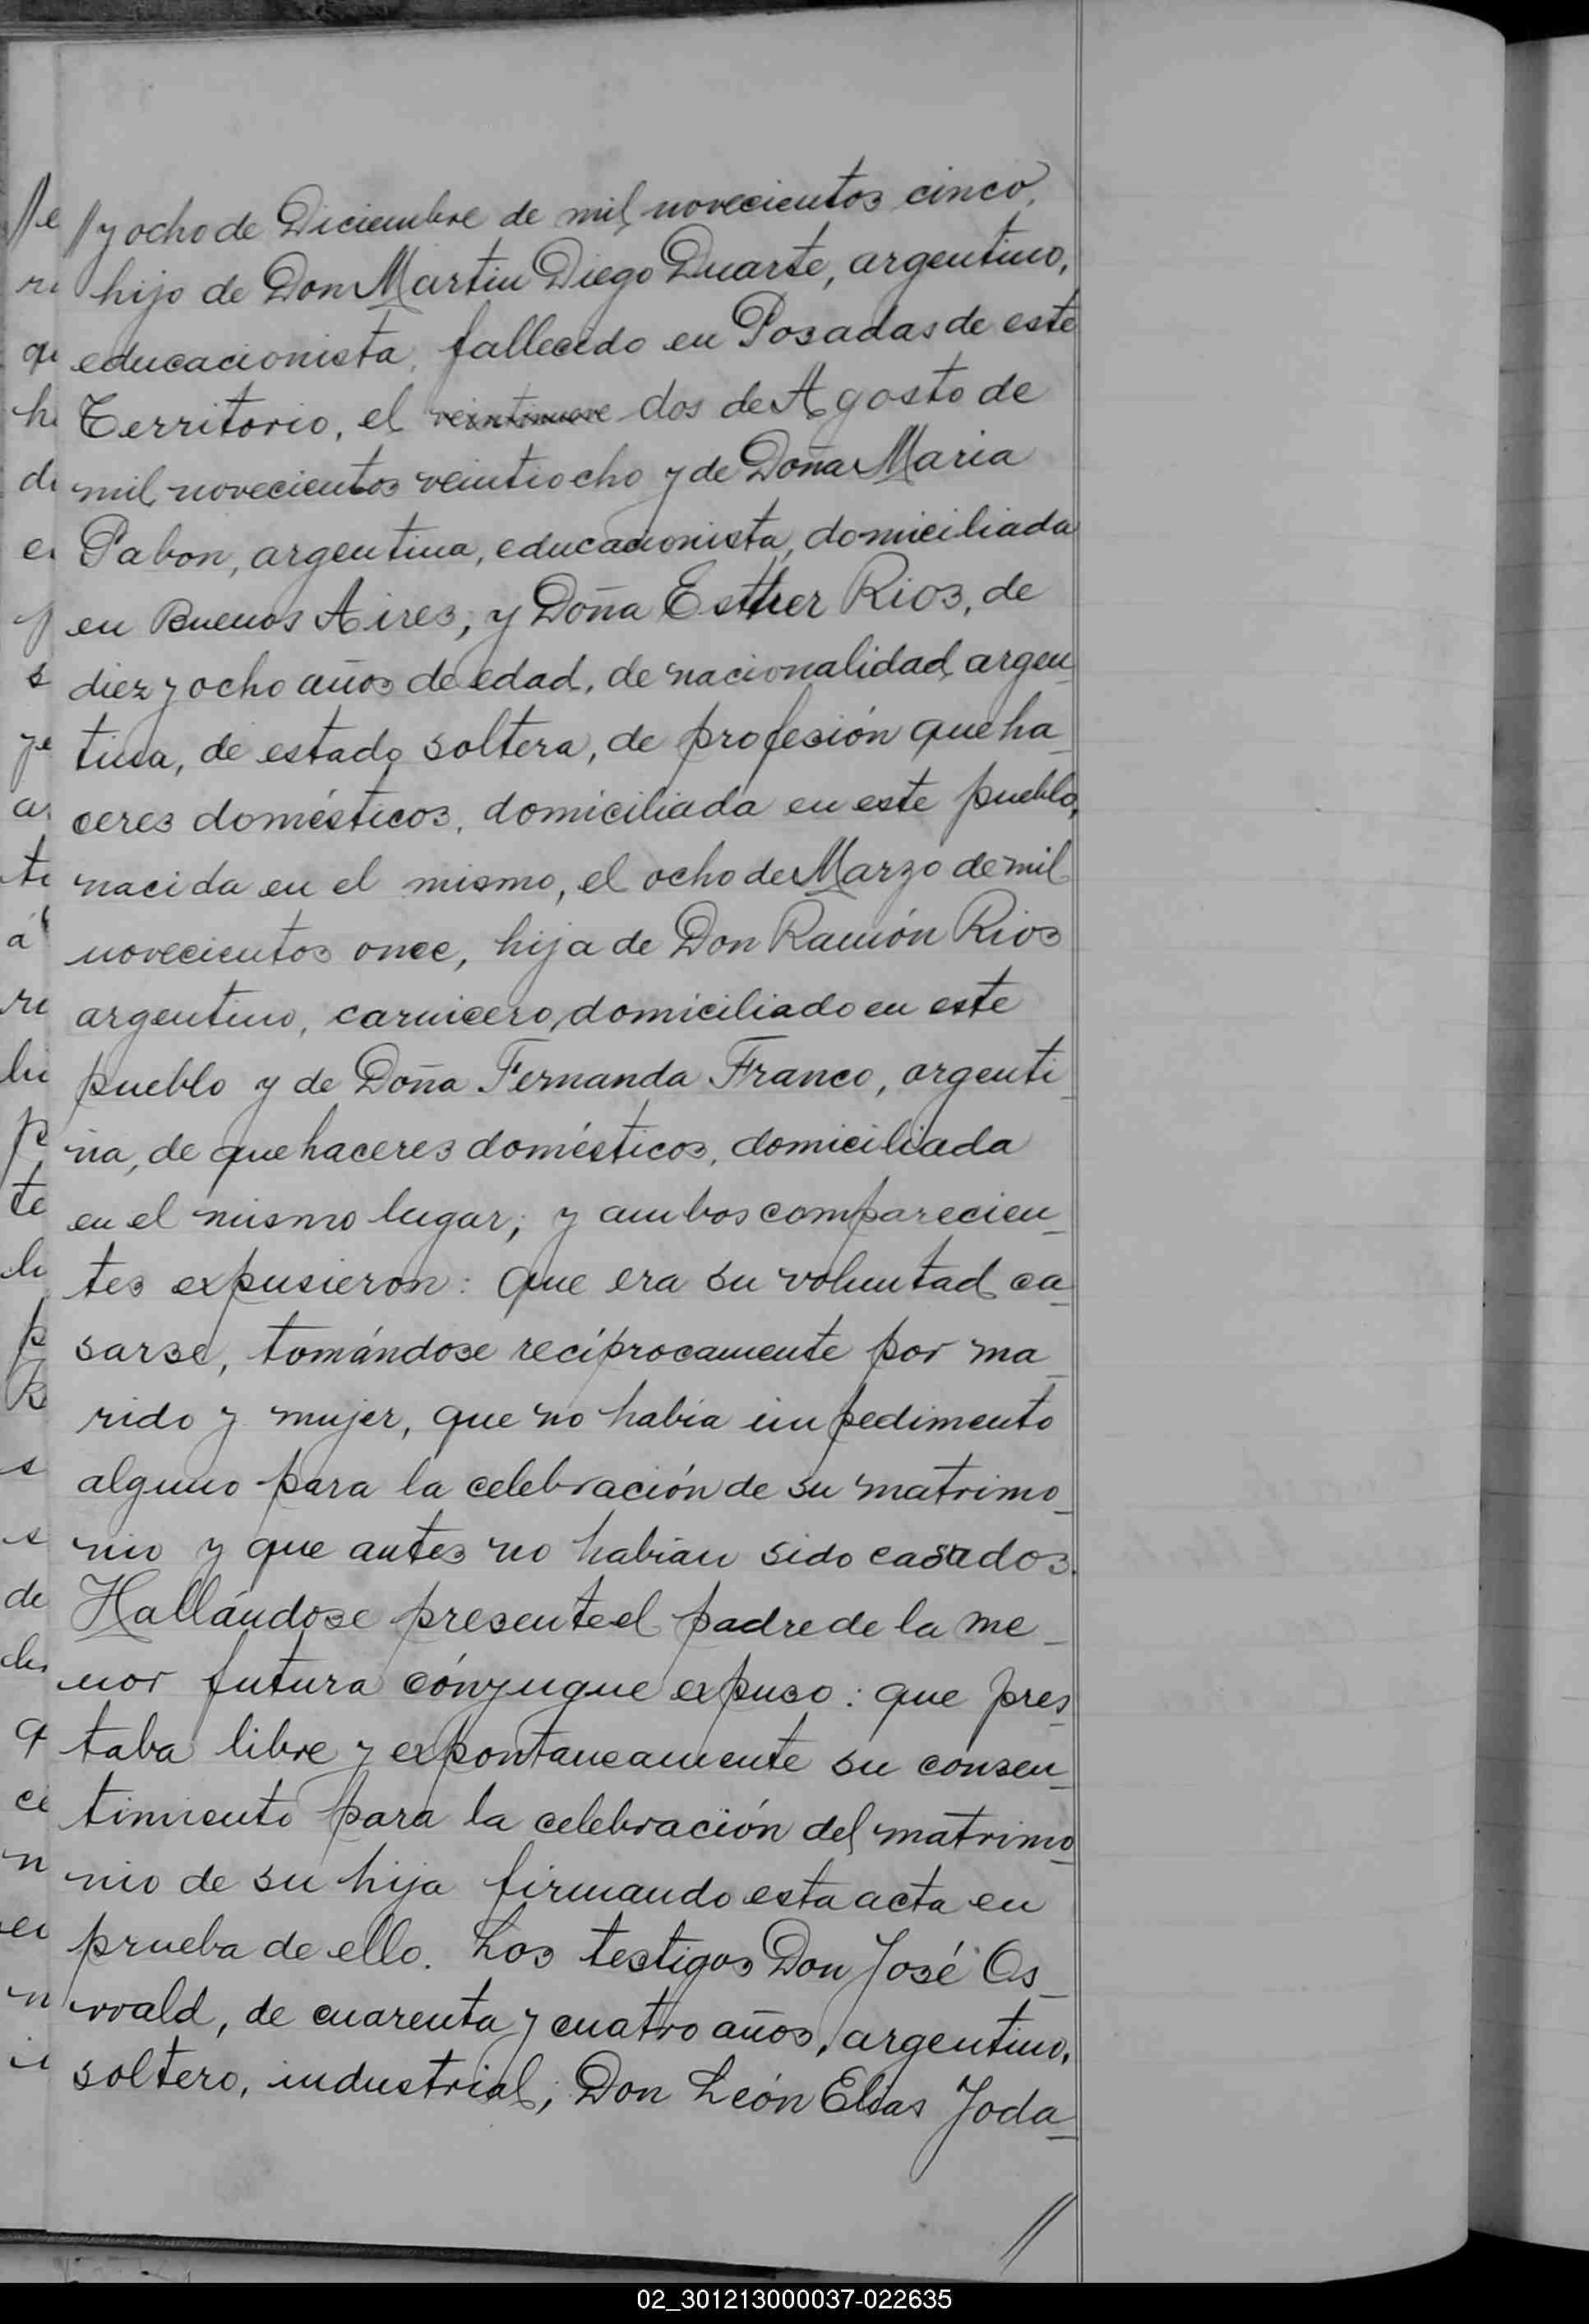 // y ocho de Diciembre de mil novecientos cinco,
hijo de Don Martin Diego Duarte, argentino,
educacionista, fallecido en Posadas de este
Territorio, el veintinueve dos de Agosto de
mil novecientos veintiocho y de Doña Maria
Pabon, argentina, educacionista, domiciliada
en Buenos Aires; y Doña Esther Rios, de
diez y ocho años de edad, de nacionalidad argen_
tina, de estado soltera, de profesión queha_
ceres domésticos, domiciliada en este pueblo,
nacida en el mismo, el ocho de Marzo de mil
novecientos once, hija de Don Ramón Rios
argentino, carnicero, domiciliado en este
pueblo y de Doña Fernanda Franco, argenti_
na, de quehaceres domésticos, domiciliada
en el mismo lugar; y ambos comparecien_
tes expusieron: que era su voluntad ca_
sarse, tomándose recíprocamente por ma_
rido y mujer, que no había impedimento
alguno para la celebración de su matrimo_
nio y que antes no habían sido casados.
Hallándose presente el padre de la me_
nor futura cónyugue expuso: que pres_
taba libre y expontaneamente su consen_
timiento para la celebración del matrimo_
nio de su hija firmando esta acta en
prueba de ello. Los testigos Don José Os_
wald, de cuarenta y cuatro años, argentino,
soltero, industrial; Don León Elias Joda_
//
02_301213000037-022635